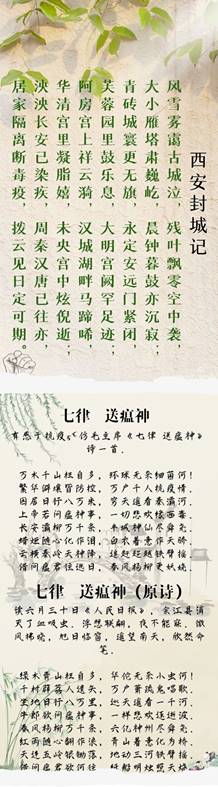 西安封城记
风雪雾霭古城泣，残叶飘零空中袭，
大小雁塔肃巍屹，晨钟暮鼓亦沉寂，
青砖城寰更无旗，永定安远门紧闭，
芙蓉园里鼓乐息，大明宫阙罕足迹，
阿房宫上祥云骑，汉城湖畔马蹄唏，
华清宫里凝脂嬉，未央宫中炫倪逝，
泱泱长安已染疾，周秦汉唐已往亦，
居家隔离断毒疫，拨云见日定可期。
七律 送瘟神
有感于抗疫，仿毛主席《七律 送瘟神》
诗一首.
万木千山枉自多，环球无奈细菌何！
繁华僻壤皆防控，万户千人抗疫情。
困居日行八万米，穷天遥看春灞河。
上帝若问瘟神事，一切悲欢
长安灞柳万千条，半城神仙尽舜尧。
随心化作浪，
云横秦岭天神降，铁臂摇。
借问瘟君往
七律 送瘟神（原诗）
读六月三十日《人民日报》，余江县消
灭了血吸虫，浮想联翩，夜不能寐，微
风拂晓，旭日临窗，遥望南天，欣然命
笔.
绿水青山枉自多，华佗无奈小虫何！
千村薜荔人遗矢，万户萧疏鬼唱歌。
坐地日行八万里，巡天遥看一千河。
牛郎欲问瘟神事，一样悲欢逐逝波。
春风杨柳万千条，六亿神州尽舜尧。
红雨随心翻作浪，青山着意化为桥。
天连五岭银锄落，地动三河铁臂摇。
借问瘟君欲何往，纸船明烛照天烧。